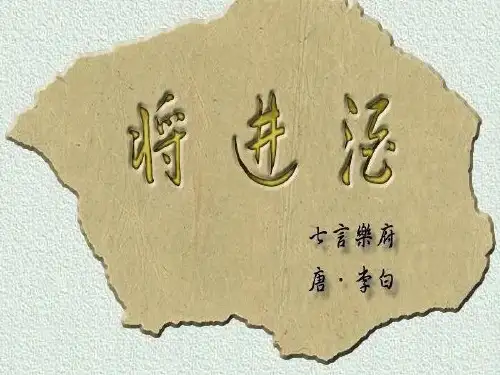 将进酒
七言樂府
唐·李白